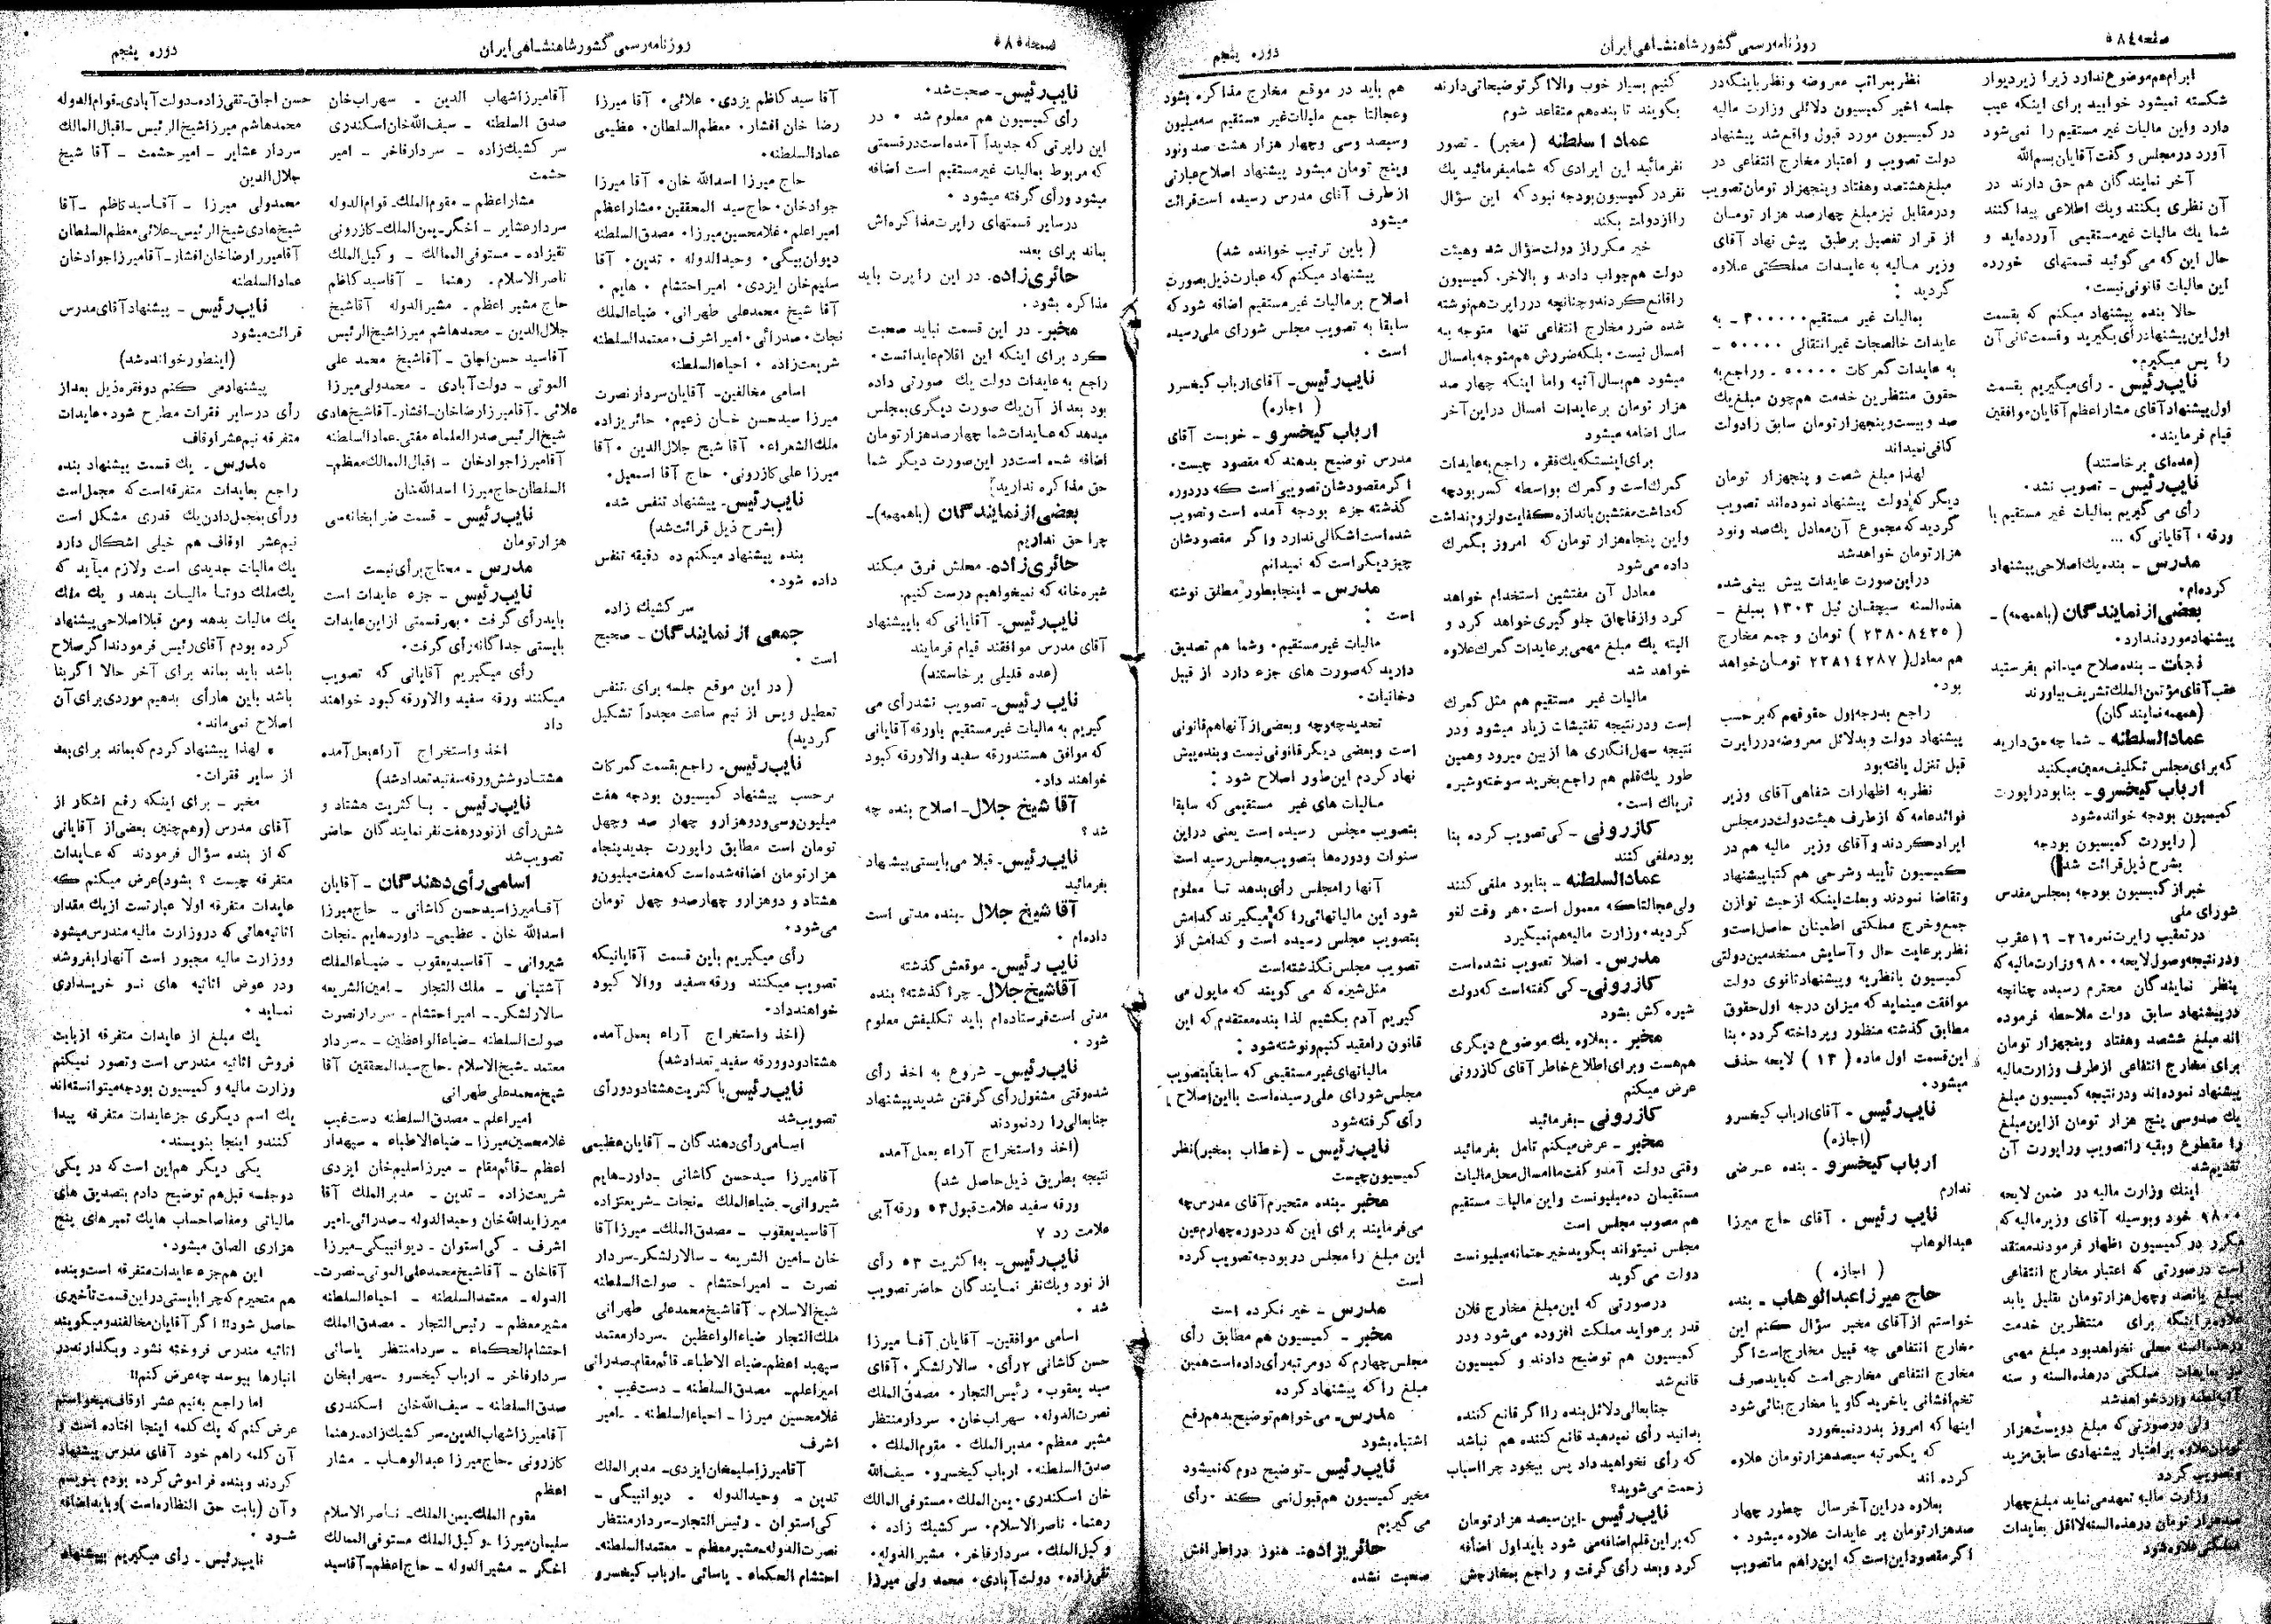 صفحه ۵۸۴
روزنامه رسمی کشور شاهنشاهی ایران
دوره پنجم
ابرام هم موضوع ندارد زیرا زیر دیوار
شکسته نمیشود خوابید برای اینکه عیب
دارد و این مالیات غیر مستقیم را نمی شود
آورد در مجلس و گفت آقایان بسم الله
آخر نمایندگان هم حق دارند در
آن نظری بکنند و یك اطلاعی پیدا کنند
شما یك مالیات غیر مستقیمی آورده اید و
حال این که می گوئید قسمتهای خورده
این مالیات قانونی نیست.
حالا بنده پیشنهاد میکنم که بقسمت
اول این پیشنهاد رأی بگیرید و قسمت ثانی آن
را پس میگیرم.
نایب رئیس ـ رأی میگیریم بقسمت
اول پیشنهاد آقای مشار اعظم آقایان موافقین
قیام فرمایند.
(عده ای برخاستند)
نایب رئیس ـ تصویب نشد.
رأی می گیریم بمالیات غیر مستقیم با
ورقه، آقایانی که ...
مدرس ـ بنده یك اصلاحی پیشنهاد
کرده ام.
بعضی از نمایندگان (باهمهمه) ـ
پیشنهاد مورد ندارد.
نجات ـ بنده صلاح میدانم بفرستید
عقب آقای مؤتمن الملك تشریف بیاورند
(همهمه نمایندگان)
عماد السلطنه ـ شما چه حق دارید
که برای مجلس تکلیف معین میکنید
ارباب کیخسرو ـ بنا بود راپورت
کمیسیون بودجه خوانده شود
(راپورت کمیسیون بودجه
بشرح ذیل قرائت شد)
خبر از کمیسیون بودجه بمجلس مقدس
شورای ملی
در تعقیب راپرت نمره ۲۶ ـ ۱۶ عقرب
و در نتیجه وصول لایحه ۹۸۰۰ وزارت مالیه که
بنظر نمایندگان محترم رسیده چنانچه
در پیشنهاد سابق دولت ملاحظه فرموده
اند مبلغ ششصد و هفتاد و پنجهزار تومان
برای مخارج انتفاعی از طرف وزارت مالیه
پیشنهاد نموده اند و در نتیجه کمیسیون مبلغ
یك صد و سی پنج هزار تومان از این مبلغ
را مقطوع و بقیه را تصویب و راپورت آن
تقدیم شد
اینك وزارت مالیه در ضمن لایحه
۹۸۰۰ خود و بوسیله آقای وزیر مالیه که
مکرر در کمیسیون اظهار فرمودند معتقد
است در صورتی که اعتبار مخارج انتفاعی
بمبلغ پانصد و چهل هزار تومان تقلیل یابد
علاوه بر اینکه برای منتظرین خدمت
در هذه السنه محلی نخواهد بود مبلغ مهمی
نیز بعایدات مملکتی در هذه السنه و سنه
آتیه لطمه وارد خواهد شد
ولی در صورتی که مبلغ دویست هزار
تومان علاوه بر اعتبار پیشنهادی سابق مزید
و تصویب گردد
وزارت مالیه تعهد می نماید مبلغ چهار
صد هزار تومان در هذه السنه لااقل بعایدات
مملکتی علاوه شود
نظر بمراتب معروضه و نظر باینکه در
جلسه اخیر کمیسیون دلائلی وزارت مالیه
در کمیسیون مورد قبول واقع شد پیشنهاد
دولت تصویب و اعتبار مخارج انتفاعی در
مبلغ هشتصد و هفتاد و پنجهزار تومان تصویب
و در مقابل نیز مبلغ چهار صد هزار تومان
از قرار تفصیل بر طبق پیش نهاد آقای
وزیر مالیه به عایدات مملکتی علاوه
گردید:
بمالیات غیر مستقیم ۳۰۰۰۰۰ ـ به
عایدات خالصجات غیر انتقالی ۵۰۰۰۰ ـ
به عایدات گمرکات ۵۰۰۰۰ ـ و راجع به
حقوق منتظرین خدمت هم چون مبلغ یك
صد و بیست و پنجهزار تومان سابق را دولت
کافی نمیداند
لهذا مبلغ شصت و پنجهزار تومان
دیگر که دولت پیشنهاد نموده اند تصویب
گردید که مجموع آن معادل یك صد و نود
هزار تومان خواهد شد
در این صورت عایدات پیش بینی شده
هذه السنه سیچقان ئیل ۱۳۰۳ بمبلغ ـ
(۲۳۸۰۸۴۲۵) تومان و جمع مخارج
هم معادل (۲۳۸۱۴۲۸۷) تومان خواهد
بود.
راجع بدرجه اول حقوقهم که بر حسب
پیشنهاد دولت و بدلائل معروضه در راپرت
قبل تنزل یافته بود
نظر به اظهارات شفاهی آقای وزیر
فوائد عامه که از طرف هیئت دولت در مجلس
ایراد کردند و آقای وزیر مالیه هم در
کمیسیون تأیید و شرحی هم کتبا پیشنهاد
و تقاضا نمودند و بعلت اینکه از حیث توازن
جمع و خرج مملکتی اطمینان حاصل است و
نظر برعایت حال و آسایش مستخدمین دولتی
کمیسیون با نظریه و پیشنهاد ثانوی دولت
موافقت مینماید که میزان درجه اول حقوق
مطابق گذشته منظور و پرداخته گردد. بنا
بر این قسمت اول ماده (۱۳) لایحه حذف
میشود.
نایب رئیس ـ آقای ارباب کیخسرو
(اجازه)
ارباب کیخسرو ـ بنده عرضی
ندارم
نایب رئیس ـ آقای حاج میرزا
عبدالوهاب
(اجازه)
حاج میرزا عبدالوهاب ـ بنده
خواستم از آقای مخبر سؤال کنم این
مخارج انتفاعی چه قبیل مخارج است اگر
مخارج انتفاعی مخارجی است که باید صرف
تخم افشانی یا خرید گاو یا مخارج بنائی شود
اینها که امروز بدرد نمیخورد
که یکمرتبه سیصد هزار تومان علاوه
کرده اند
بعلاوه در این آخر سال چطور چهار
صد هزار تومان بر عایدات علاوه میشود.
اگر مقصود این است که این را هم ما تصویب
کنیم بسیار خوب والا اگر توضیحاتی دارند
بگویند تا بنده هم متقاعد شوم
عماد السلطنه (مخبر) ـ تصور
نفرمائید این ایرادی که شما میفرمائید یك
نفر در کمیسیون بودجه نبود که این سؤال
را از دولت بکند
خیر مکرر از دولت سؤال شد و هیئت
دولت هم جواب دادند و بالاخره کمیسیون
را قانع کردند و چنانچه در راپرت هم نوشته
شده ضرر مخارج انتفاعی تنها متوجه به
امسال نیست. بلکه ضررش هم متوجه بامسال
میشود هم بسال آتیه و اما اینکه چهار صد
هزار تومان بر عایدات امسال در این آخر
سال اضافه میشود
برای اینستکه یك فقره راجع به عایدات
گمرك است و گمرك بواسطه کسر بودجه
که داشت مفتشین باندازه کفایت و لزوم نداشت
و این پنجاه هزار تومان که امروز بگمرك
داده می شود
معادل آن مفتشین استخدام خواهد
کرد و از قاچاق جلوگیری خواهد کرد و
البته یك مبلغ مهمی بر عایدات گمرك علاوه
خواهد شد
مالیات غیر مستقیم هم مثل گمرك
است و در نتیجه تفتیشات زیاد میشود و در
نتیجه سهل انگاری ها از بین میرود و همین
طور یك قلم هم راجع بخرید سوخته و شیره
تریاك است.
کازرونی ـ کی تصویب کرده بنا
بود ملغی کنند
عماد السلطنه ـ بنا بود ملغی کنند
ولی عجالتا که معمول است. هر وقت لغو
گردید. وزارت مالیه هم نمیگیرد
مدرس ـ اصلا تصویب نشده است
کازرونی ـ کی گفته است که دولت
شیره کش بشود
مخبر ـ بعلاوه یك موضوع دیگری
هم هست و برای اطلاع خاطر آقای کازرونی
عرض میکنم
کازرونی ـ بفرمائید
مخبر ـ عرض میکنم تامل بفرمائید
وقتی دولت آمد و گفت ما امسال محل مالیات
مستقیمان ده میلیونست و این مالیات مستقیم
هم مصوب مجلس است
مجلس نمیتواند بگوید خیر حتما نه میلیونست
دولت می گوید
در صورتی که این مبلغ مخارج فلان
قدر بر عواید مملکت افزوده می شود و در
کمیسیون هم توضیح دادند و کمیسیون
قانع شد
جنابعالی دلائل بنده را اگر قانع کننده
بدانید رأی نمیدهید قانع کننده هم نباشد
که رأی نخواهید داد پس بیخود چرا اسباب
زحمت می شوید؟
نایب رئیس ـ این سیصد هزار تومان
که بر این قلم اضافه می شود باید اول اضافه
کرد و بعد رأی گرفت و راجع بمخارجش
هم باید در موقع مخارج مذاکره بشود
و عجالتا جمع مالیات غیر مستقیم سه میلیون
و سیصد و سی و چهار هزار هشت صد و نود
و پنج تومان میشود پیشنهاد اصلاح عبارتی
از طرف آقای مدرس رسیده است قرائت
میشود
(باین ترتیب خوانده شد)
پیشنهاد میکنم که عبارت ذیل بصورت
اصلاح بر مالیات غیر مستقیم اضافه شود که
سابقا به تصویب مجلس شورای ملی رسیده
است.
نایب رئیس ـ آقای ارباب کیخسرو
(اجازه)
ارباب کیخسرو ـ خوبست آقای
مدرس توضیح بدهند که مقصود چیست.
اگر مقصودشان تصویبی است که در دوره
گذشته جزء بودجه آمده است و تصویب
شده است اشکالی ندارد و اگر مقصودشان
چیز دیگر است که نمیدانم
مدرس ـ اینجا بطور مطلق نوشته
است:
مالیات غیر مستقیم. و شما هم تصدیق
دارید که صورت های جزء دارد از قبیل
دخانیات.
تحدید چه و چه و بعضی از آنها هم قانونی
است و بعضی دیگر قانونی نیست و بنده پیش
نهاد کردم این طور اصلاح شود:
مالیات های غیر مستقیمی که سابقا
بتصویب مجلس رسیده است یعنی در این
سنوات و دوره ها بتصویب مجلس رسید است
آنها را مجلس رأی بدهد تا معلوم
شود این مالیاتهائی را که میگیرند کدامش
بتصویب مجلس رسیده است و کدامش از
تصویب مجلس نگذشته است
مثل شیره که می گویند که ما پول می
گیریم آدم بکشیم لذا بنده معتقدم که این
قانون را مقید کنیم و نوشته شود:
مالیاتهای غیر مستقیمی که سابقا بتصویب
مجلس شورای ملی رسیده است با این اصلاح
رأی گرفته شود
نایب رئیس ـ (خطاب بمخبر) نظر
کمیسیون چیست
مخبر ـ بنده متحیرم آقای مدرس چه
می فرمایند برای این که در دوره چهارم عین
این مبلغ را مجلس در بودجه تصویب کرده
است
مدرس ـ خیر نکرده است
مخبر ـ کمیسیون هم مطابق رأی
مجلس چهارم که دو مرتبه رأی داده است همین
مبلغ را که پیشنهاد کرده
مدرس ـ می خواهم توضیح بدهم رفع
اشتباه بشود
نایب رئیس ـ توضیح دوم که نمیشود
مخبر کمیسیون هم قبول نمی کند. رأی
می گیریم
حائریزاده ـ هنوز در اطرافش
صحبت نشده
صفحه ۵۸۵
روزنامه رسمی کشور شاهنشاهی ایران
دوره پنجم
نایب رئیس ـ صحبت شد.
رأی کمیسیون هم معلوم شد. در
این راپرتی که جدیداً آمده است در قسمتی
که مربوط بمالیات غیر مستقیم است اضافه
میشود و رأی گرفته میشود.
در سایر قسمتهای راپرت مذاکره اش
بماند برای بعد.
حائری زاده ـ در این راپرت باید
مذاکره بشود.
مخبر ـ در این قسمت نباید صحبت
کرد برای اینکه این اقلام عایداتست.
راجع به عایدات دولت یك صورتی داده
بود بعد از آن یك صورت دیگری بمجلس
میدهد که عایدات شما چهار صد هزار تومان
اضافه شده است در این صورت دیگر شما
حق مذاکره ندارید!
بعضی از نمایندگان (باهمهمه) ـ
چرا حق نداریم
حائری زاده ـ محلش فرق میکند
شیره خانه که نمیخواهیم درست کنیم.
نایب رئیس ـ آقایانی که با پیشنهاد
آقای مدرس موافقند قیام فرمایند
(عده قلیلی برخاستند)
نایب رئیس ـ تصویب نشد رأی می
گیریم به مالیات غیر مستقیم با ورقه آقایانی
که موافق هستند ورقه سفید والا ورقه کبود
خواهند داد.
آقا شیخ جلال ـ اصلاح بنده چه
شد؟
نایب رئیس ـ قبلا می بایستی پیشنهاد
بفرمائید
آقا شیخ جلال ـ بنده مدتی است
داده ام.
نایب رئیس ـ موقعش گذشته
آقا شیخ جلال ـ چرا گذشته؟ بنده
مدتی است فرستاده ام باید تکلیفش معلوم
شود.
نایب رئیس ـ شروع به اخذ رأی
شده وقتی مشغول رأی گرفتن شدید پیشنهاد
جنابعالی را رد نمودند
(اخذ و استخراج آراء بعمل آمده
نتیجه بطریق ذیل حاصل شد)
ورقه سفید علامت قبول ۵۳ ورقه آبی
علامت رد ۷
نایب رئیس ـ به اکثریت ۵۳ رأی
از نود و یك نفر نمایندگان حاضر تصویب
شد.
اسامی موافقین ـ آقایان آقا میرزا
حسن کاشانی ۲ رأی. سالار لشکر. آقای
سید یعقوب. رئیس التجار. مصدق الملك
نصرت الدوله. سهراب خان. سردار منتظر
مشیر معظم. مدیر الملك. مقوم الملك.
صدق السلطنه. ارباب کیخسرو. سیف الله
خان اسکندری. یمن الملك. مستوفی المالك
رهنما. ناصر الاسلام. سرکشیك زاده.
وکیل الملك. سردار فاخر. مشیر الدوله.
تقی زاده. دولت آبادی. محمد ولی میرزا
آقا سید کاظم یزدی. علائی. آقا میرزا
رضا خان افشار. معظم السلطان. عظیمی
عماد السلطنه.
حاج میرزا اسدالله خان. آقا میرزا
جواد خان. حاج سید المحققین. مشار اعظم
امیر اعلم. غلامحسین میرزا. مصدق السلطنه
دیوان بیگی. وحید الدوله. تدین. آقا
سلیم خان ایزدی. امیر احتشام. هایم.
آقا شیخ محمد علی طهرانی. ضیاء الملك
نجات. صدرائی. امیر اشرف. معتمد السلطنه
شریعت زاده. احیاء السلطنه
اسامی مخالفین ـ آقایان سردار نصرت
میرزا سید حسن خان زعیم. حائریزاده
ملك الشعراء. آقا شیخ جلال الدین. آقا
میرزا علی کازرونی. حاج آقا اسمعیل.
نایب رئیس ـ پیشنهاد تنفس شده
(بشرح ذیل قرائت شد)
بنده پیشنهاد میکنم ده دقیقه تنفس
داده شود.
سرکشیك زاده
جمعی از نمایندگان ـ صحیح
است.
(در این موقع جلسه برای تنفس
تعطیل و پس از نیم ساعت مجدداً تشکیل
گردید)
نایب رئیس ـ راجع بقسمت گمرکات
بر حسب پیشنهاد کمیسیون بودجه هفت
میلیون و سی و دو هزار و چهار صد و چهل
تومان است مطابق راپورت جدید پنجاه
هزار تومان اضافه شده است که هفت میلیون و
هشتاد و دو هزار و چهار صد و چهل تومان
می شود.
رأی میگیریم باین قسمت آقایانیکه
تصویب میکنند ورقه سفید والا کبود
خواهند داد.
(اخذ و استخراج آراء بعمل آمده
هشتاد و دو ورقه سفید تعداد شد)
نایب رئیس با کثریت هشتاد و دو رأی
تصویب شد
اسامی رأی دهندگان ـ آقایان عظیمی
آقا میرزا سید حسن کاشانی ـ داور ـ هایم
شیروانی ـ ضیاء الملك ـ نجات ـ شریعتزاده
آقا سید یعقوب ـ مصدق الملك ـ میرزا آقا
خان ـ امین الشریعه ـ سالار لشکر ـ سردار
نصرت ـ امیر احتشام ـ صولت السلطنه
شیخ الاسلام ـ آقا شیخ محمد علی طهرانی
ملك التجار ضیاء الواعظین ـ سردار معتمد
سپهبد اعظم ـ ضیاء الاطباء ـ قائم مقام ـ صدرائی
امیر اعلم ـ مصدق السلطنه ـ دست غیب.
غلامحسین میرزا ـ احیاء السلطنه ـ امیر
اشرف
آقا میرزا سلیمخان ایزدی ـ مدیر الملك
تدین ـ وحید الدوله ـ دیوانبیگی ـ
کی استوان ـ رئیس التجار ـ سردار منتظر
نصرت الدوله ـ مشیر معظم ـ معتمد السلطنه ـ
احتشام الحکماء ـ یاسائی ـ ارباب کیخسرو
آقا میرزا شهاب الدین ـ سهراب خان
صدق السلطنه ـ سیف الله خان اسکندری
سرکشیك زاده ـ سردار فاخر ـ امیر
حشمت
مشار اعظم ـ مقوم الملك ـ قوام الدوله
سردار عشایر ـ اخگر ـ یمن الملك ـ کازرونی
تقیزاده ـ مستوفی الممالك ـ وکیل الملك
ناصر الاسلام ـ رهنما ـ آقا سید کاظم
حاج مشیر اعظم ـ مشیر الدوله آقا شیخ
جلال الدین ـ محمد هاشم میرزا شیخ الرئیس
آقا سید حسن اجاق ـ آقا شیخ محمد علی
الموتی ـ دولت آبادی ـ محمد ولی میرزا
علائی ـ آقا میرزا رضا خان ـ افشار ـ آقا شیخ هادی
شیخ الرئیس صدر العلماء مفتی ـ عماد السلطنه
آقا میرزا جواد خان ـ اقبال الممالك معظم ـ
السلطان حاج میرزا اسدالله خان
نایب رئیس ـ قسمت ضرابخانه سی
هزار تومان
مدرس ـ محتاج برأی نیست
نایب رئیس ـ جزء عایدات است
باید رأی گرفت. بهر قسمتی از این عایدات
بایستی جداگانه رأی گرفت.
رأی میگیریم آقایانی که تصویب
میکنند ورقه سفید والا ورقه کبود خواهند
داد
اخذ و استخراج آراء بعمل آمده
هشتاد و شش ورقه سفید تعداد شد)
نایب رئیس ـ با کثریت هشتاد و
شش رأی از نود و هفت نفر نمایندگان حاضر
تصویب شد
اسامی رأی دهندگان ـ آقایان
آقا میرزا سید حسن کاشانی ـ حاج میرزا
اسدالله خان ـ عظیمی ـ داور ـ هایم ـ نجات
شیروانی ـ آقا سید یعقوب ـ ضیاء الملك
آشتیانی ـ ملك التجار ـ امین الشریعه
سالار لشکر ـ امیر احتشام ـ سردار نصرت
صولت السلطنه ـ ضیاء الواعظین ـ سردار
معتمد ـ شیخ الاسلام ـ حاج سید المحققین آقا
شیخ محمد علی طهرانی
امیر اعلم ـ مصدق السلطنه دست غیب
غلامحسین میرزا ـ ضیاء الاطباء ـ سپهدار
اعظم ـ قائم مقام ـ میرزا سلیم خان ایزدی
شریعت زاده ـ تدین ـ مدیر الملك آقا
میرزا یدالله خان وحید الدوله ـ صدرائی ـ امیر
اشرف ـ کی استوان ـ دیوانبیگی ـ میرزا
آقا خان ـ آقا شیخ محمد علی الموتی ـ نصرت ـ
الدوله ـ معتمد السلطنه ـ احیاء السلطنه
مشیر معظم ـ رئیس التجار ـ مصدق الملك
احتشام الحکماء ـ سردار منتظر یاسائی
سردار فاخر ـ ارباب کیخسرو ـ سهرابخان
صدق السلطنه ـ سیف الله خان اسکندری
آقا میرزا شهاب الدین ـ سرکشیك زاده ـ رهنما
کازرونی ـ حاج میرزا عبدالوهاب ـ مشار
اعظم
مقوم الملك ـ یمن الملك ـ ناصر الاسلام
سلیمان میرزا ـ وکیل الملك مستوفی الممالك
اخگر ـ مشیر الدوله ـ حاج اعظم ـ آقا سید
حسن اجاق ـ تقی زاده ـ دولت آبادی ـ قوام الدوله
محمد هاشم میرزا شیخ الرئیس ـ اقبال الممالك
سردار عشایر ـ امیر حشمت ـ آقا شیخ
جلال الدین
محمد ولی میرزا ـ آقا سید کاظم ـ آقا
شیخ هادی شیخ الرئیس ـ علائی معظم السلطان
آقا میرزا رضا خان افشار ـ آقا میرزا جواد خان
عماد السلطنه
نایب رئیس ـ پیشنهاد آقای مدرس
قرائت میشود
(اینطور خوانده شد)
پیشنهاد می کنم دو فقره ذیل بعد از
رأی در سایر فقرات مطرح شود. عایدات
متفرقه نیم عشر اوقاف
مدرس ـ یك قسمت پیشنهاد بنده
راجع بعایدات متفرقه است که مجمل است
و رأی بمجمل دادن یك قدری مشکل است
نیم عشر اوقاف هم خیلی اشکال دارد
یك مالیات جدیدی است و لازم میآید که
یك ملك دو تا مالیات بدهد و یك ملك
یك مالیات بدهد و من قبلا اصلاحی پیشنهاد
کرده بودم آقای رئیس فرمودند اگر صلاح
باشد باید بماند برای آخر حالا اگر بنا
باشد باین ها رأی بدهیم موردی برای آن
اصلاح نمی ماند.
لهذا پیشنهاد کردم که بماند برای بعد
از سایر فقرات.
مخبر ـ برای اینکه رفع اشکار از
آقای مدرس (و هم چنین بعضی از آقایانی
که از بنده سؤال فرمودند که عایدات
متفرقه چیست؟ بشود) عرض میکنم که
عایدات متفرقه اولا عبارتست از یك مقدار
اثاثیه هائی که در وزارت مالیه مندرس میشود
و وزارت مالیه مجبور است آنها را بفروشد
و در عوض اثاثیه های نو خریداری
نماید.
یك مبلغ از عایدات متفرقه از بابت
فروش اثاثیه مندرس است و تصور نمیکنم
وزارت مالیه و کمیسیون بودجه میتوانسته اند
یك اسم دیگری جز عایدات متفرقه پیدا
کنند و اینجا بنویسند.
یکی دیگر هم این است که در یکی
دو جلسه قبل هم توضیح دادم بتصدیق های
مالیاتی و مفاصا حساب ها یك تمبر های پنج
هزاری الصاق میشود.
این هم جزء عایدات متفرقه است و بنده
هم متحیرم که چرا بایستی در این قسمت تأخیری
حاصل شود!! اگر آقایان مخالفند و میگویند
اثاثیه مندرس فروخته نشود و بگذارند در
انبارها بپوسد چه عرض کنم!!
اما راجع به نیم عشر اوقاف میخواستم
عرض کنم که یك کلمه اینجا افتاده است و
آن کلمه را هم خود آقای مدرس پیشنهاد
کردند و بنده فراموش کرده بودم بنویسم
و آن (بابت حق النظاره است) و باید اضافه
شود.
نایب رئیس ـ رأی میگیریم پیشنهاد